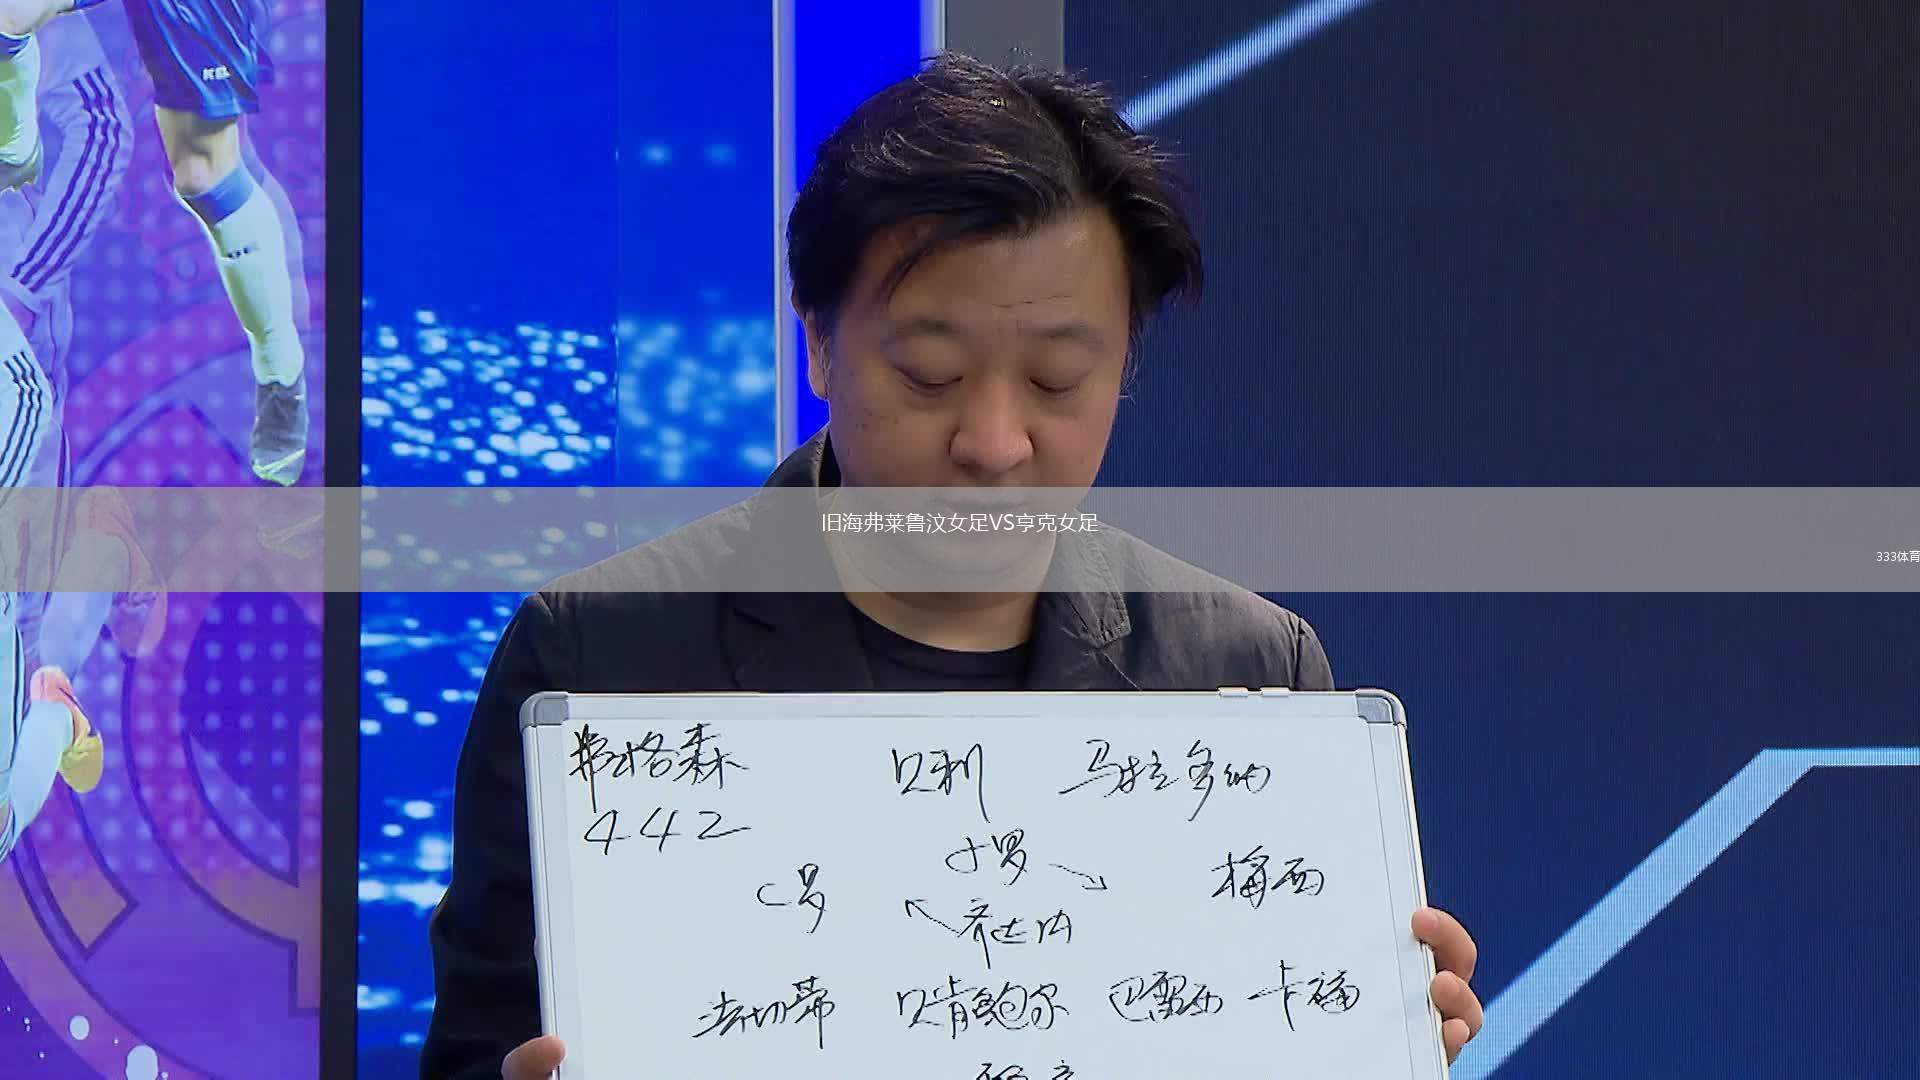 KEL
旧海弗莱鲁汶女足VS亨克女足
333体育
弗格森 贝利 马拉多纳
442
小罗
C罗 梅西
齐达内
法切蒂 贝肯鲍尔 巴雷西 卡福